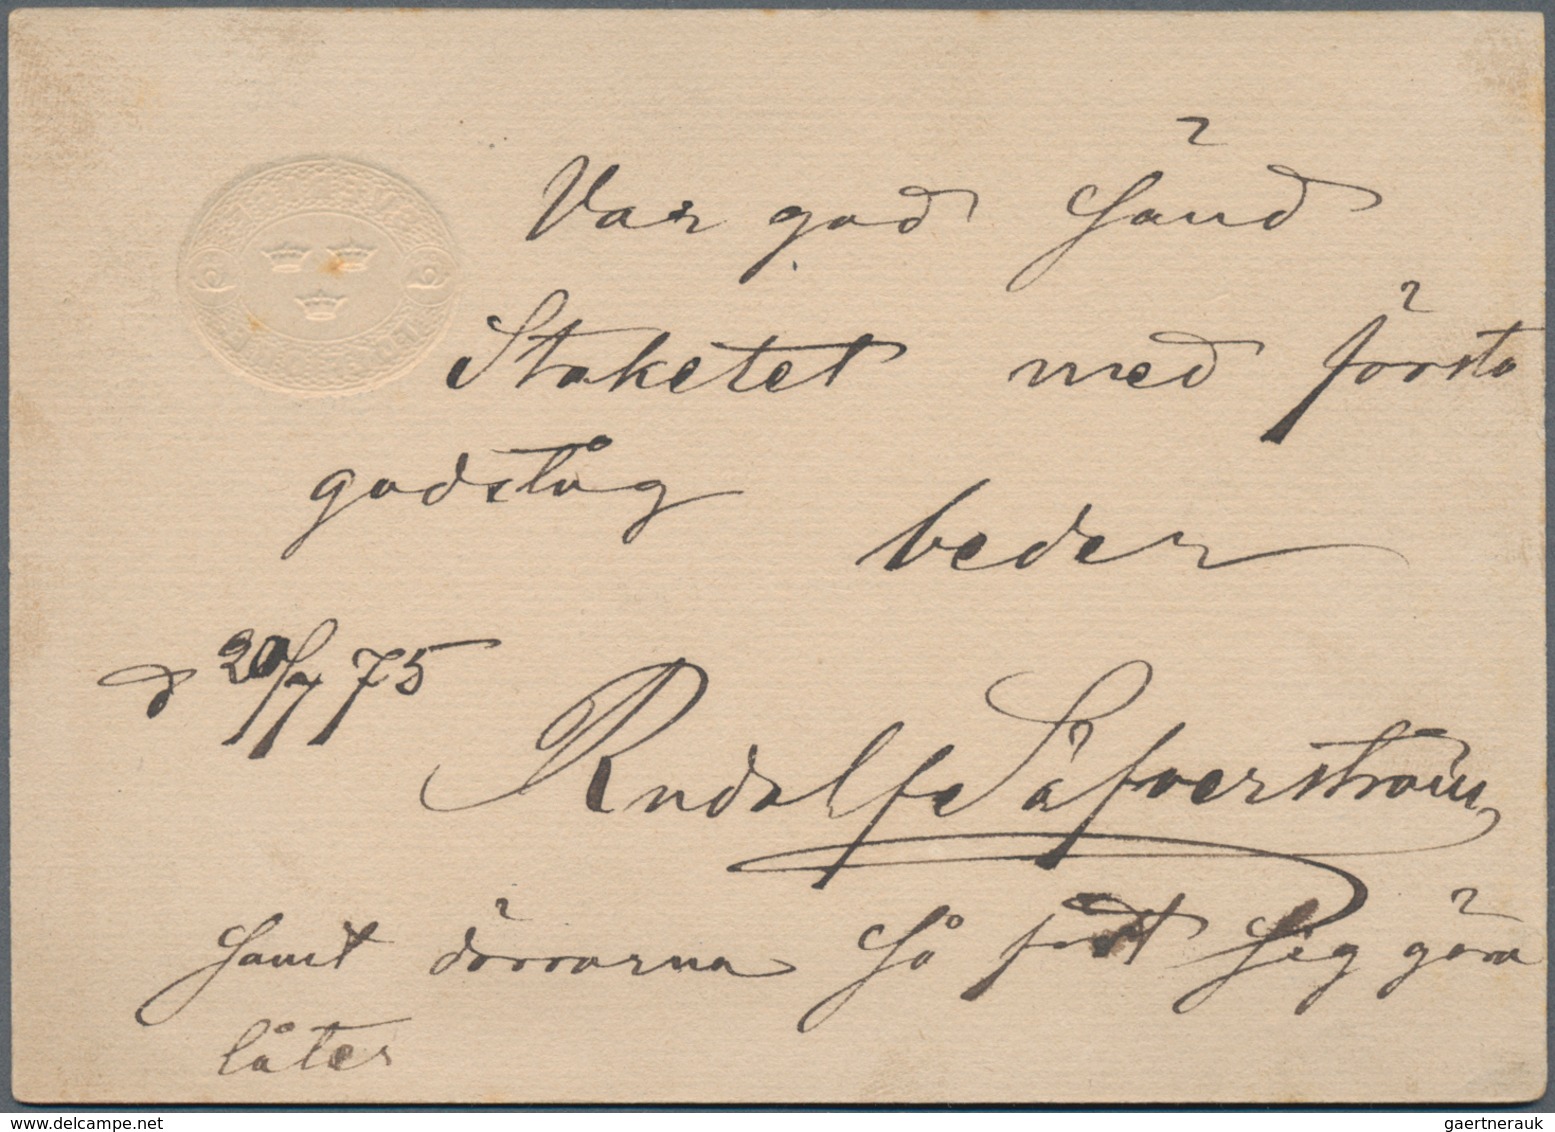 Var god sänd
Staketet med första
godståg
beder
d 20/7 75
Rudolf Säfverström
samt dörrarna så fort sig göra
låter
gaertnerauk